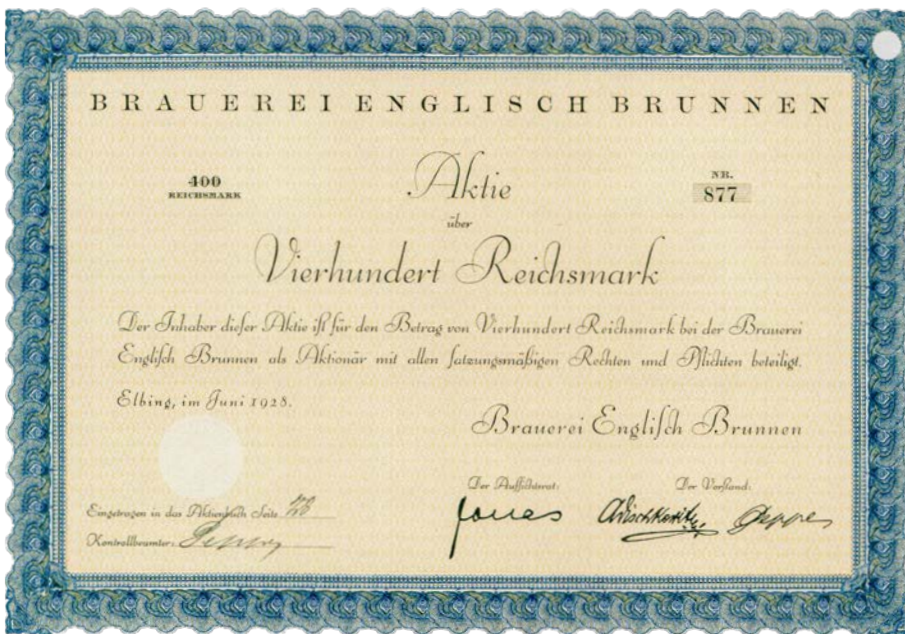 BRAUEREI ENGLISCH BRUNNEN
400
REICHSMARK
Aktie
NR.
877
über
Vierhundert Reichsmark
Der Inhaber dieſer Aktie iſt für den Betrag von Vierhundert Reichsmark bei der Brauerei
Engliſch Brunnen als Aktionär mit allen ſatzungsmäßigen Rechten und Pflichten beteiligt.
Elbing, im Juni 1928.
Brauerei Engliſch Brunnen
Der Aufſichtsrat:
Der Vorſtand:
Eingetragen in das Aktienbuch Seite
Kontrollbeamter: